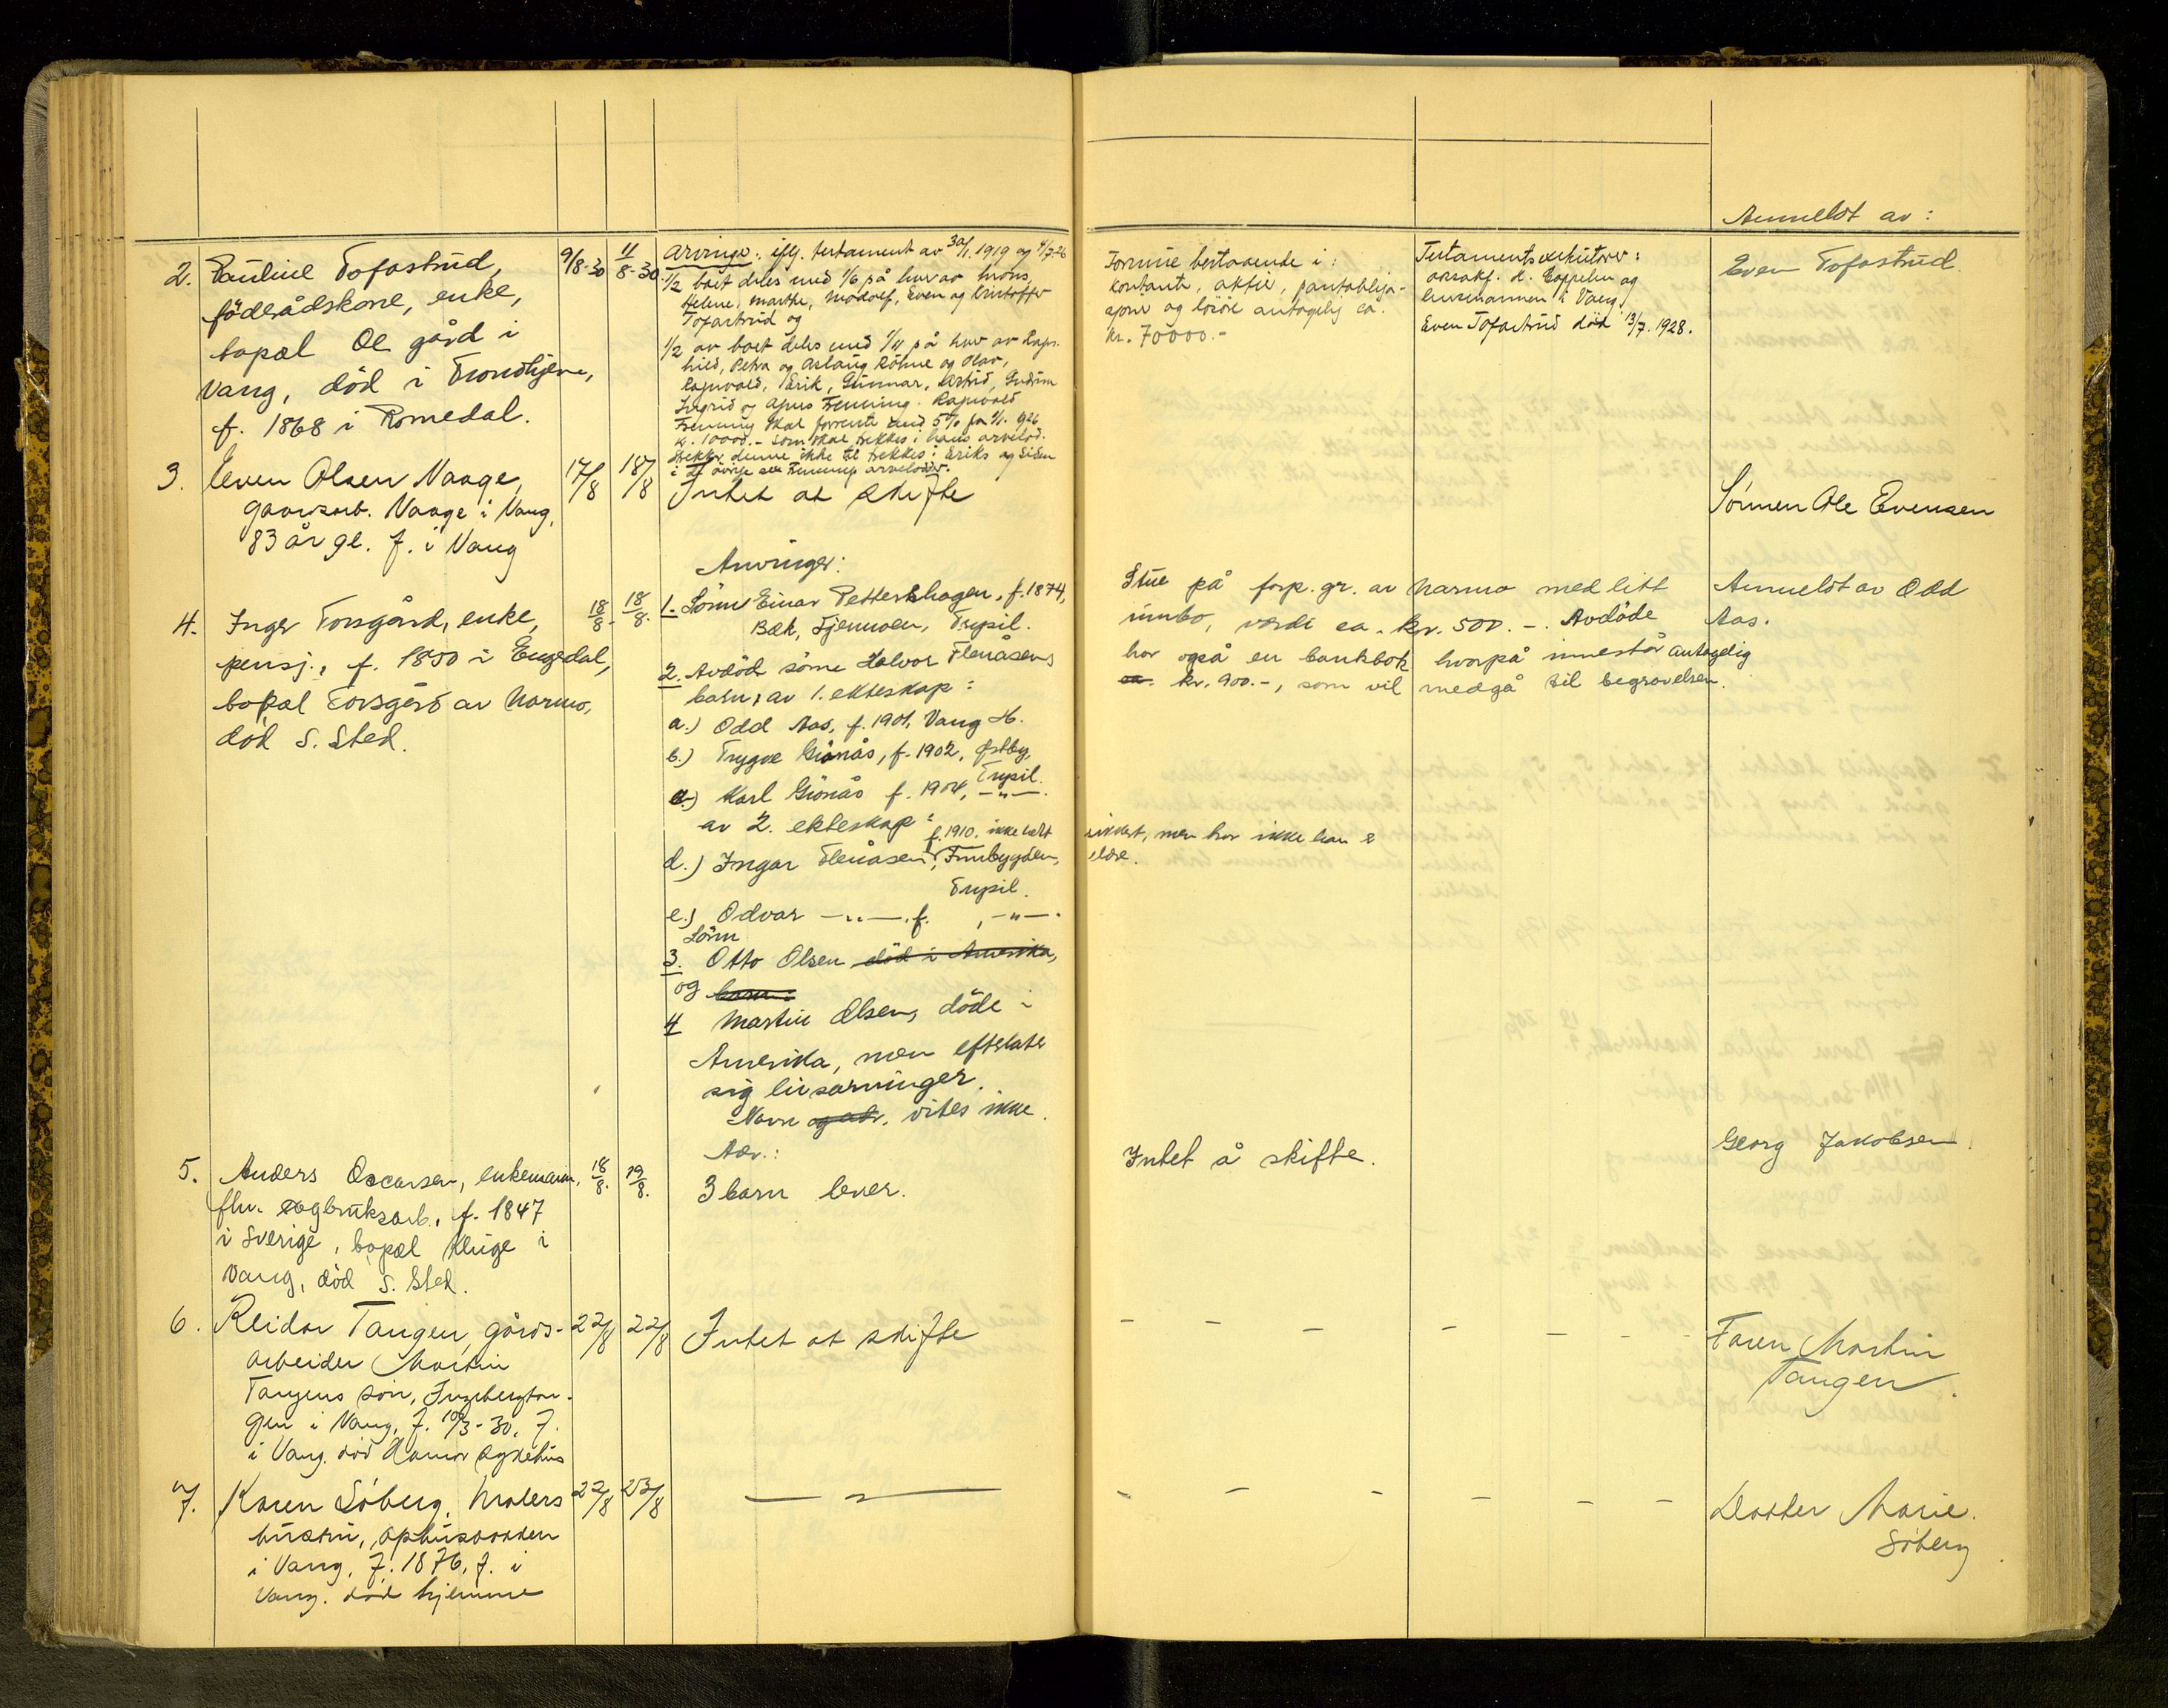 Anmeldt av:
2. Pauline Tofastrud,
föderådskone, enke,
bopæl Ol gård i
Vang, död i Trondhjem,
f. 1868 i Romedal.
9/8-30
11/8-30
Arvinge: iflg. testament av 30/1. 1919 og 4/7-26
1/2 boet deles med 1/6 på hver av
Helene, Marthe, Modolf, Even og Kristoffer
Tofastrud og
1/2 av boet deles med 1/11 på hver av Ragn-
hild, Petra og Aslaug Röhne og Olav,
Ragnvald, Erik, Gunnar, Astrid, Gudrun
Ingrid og Agnes Fenning. Ragnvald
Fenning skal forrente med 5% fra 1/1. 1926
kr. 10000.- som skal trekkes i hans arvelod.
Rekker denne ikke til trekkes i Eriks og siden
i de övrige Fennings arvelodder.
Formue bestaaende i:
kontanter, aktier, pantobliga-
sjoner og lösöre antagelig ca.
kr. 70000.-
Testamentsexekutorer:
o.r.sakf. H. Coppelen og
lensmannen i Vang.
Even Tofastrud död 13/7. 1928.
Even Tofastrud.
3. Even Olsen Naage,
gaardsarb. Naage i Vang,
83 år gl. f. i Vang
17/8
18/8
Intet at skifte
Sönnen Ole Evensen
4. Inger Torsgård, enke,
pensj., f. 1850 i Engerdal,
bopæl Torsgård av Narmo,
död s. sted.
18/8.
18/8.
Arvinger:
1. Sönn Einar Pettershagen, f. 1874,
Bæk, Tjenmoen, Trysil.
2. Avdöd sönn Halvor Flenåsens
barn, av 1. ekteskap:
a.) Odd Aas, f. 1901, Vang H.
b.) Trygve Grönås, f. 1902, Østby,
Trysil.
c.) Karl Grönås f. 1904, -"-.
av 2. ekteskap:
f. 1910. ikke helt
sikkert, men hør ikke han e
eldre.
d.) Ingar Flenåsen, Finnbygden,
Trysil.
e.) Odvar -"-, f. , -"-.
Sönn
3. Otto Olsen död i Amerika,
og barn:
4 Martin Olsen, döde i
Amerika, men efterlater
sig livsarvinger.
Navn og adr. vites ikke.
Stue på forp. gr. av Narmo med litt
innbo, verdi ca. kr. 500.-. Avdöde
har også en bankbok hvorpå innestår antagelig
ca. kr. 900.-, som vil medgå til begravelsen.
Anmeldt av Odd
Aas.
5. Anders Oscarsen, enkemann,
fhv. sagbruksarb., f. 1847
i Sverige, bopæl Kluge i
Vang, död s. sted.
18/8.
19/8.
Arv.:
3 barn lever.
Intet å skifte.
Georg Jakobsen.
6. Reidar Tangen, gårds-
arbeider Martin
Tangens sön, Ingebergtan-
gen i Vang, f. 10/3-30, f.
i Vang. död Hamar sykehus
22/8
22/8
Intet at skifte
- - - - - - -
Faren Martin
Tangen.
7. Karen Söberg, Malers
hustru, ophusgaarden
i Vang, f. 1876, f. i
Vang. död hjemme
22/8
23/8
— " —
- - - - - -
Datter Marie
Söberg.